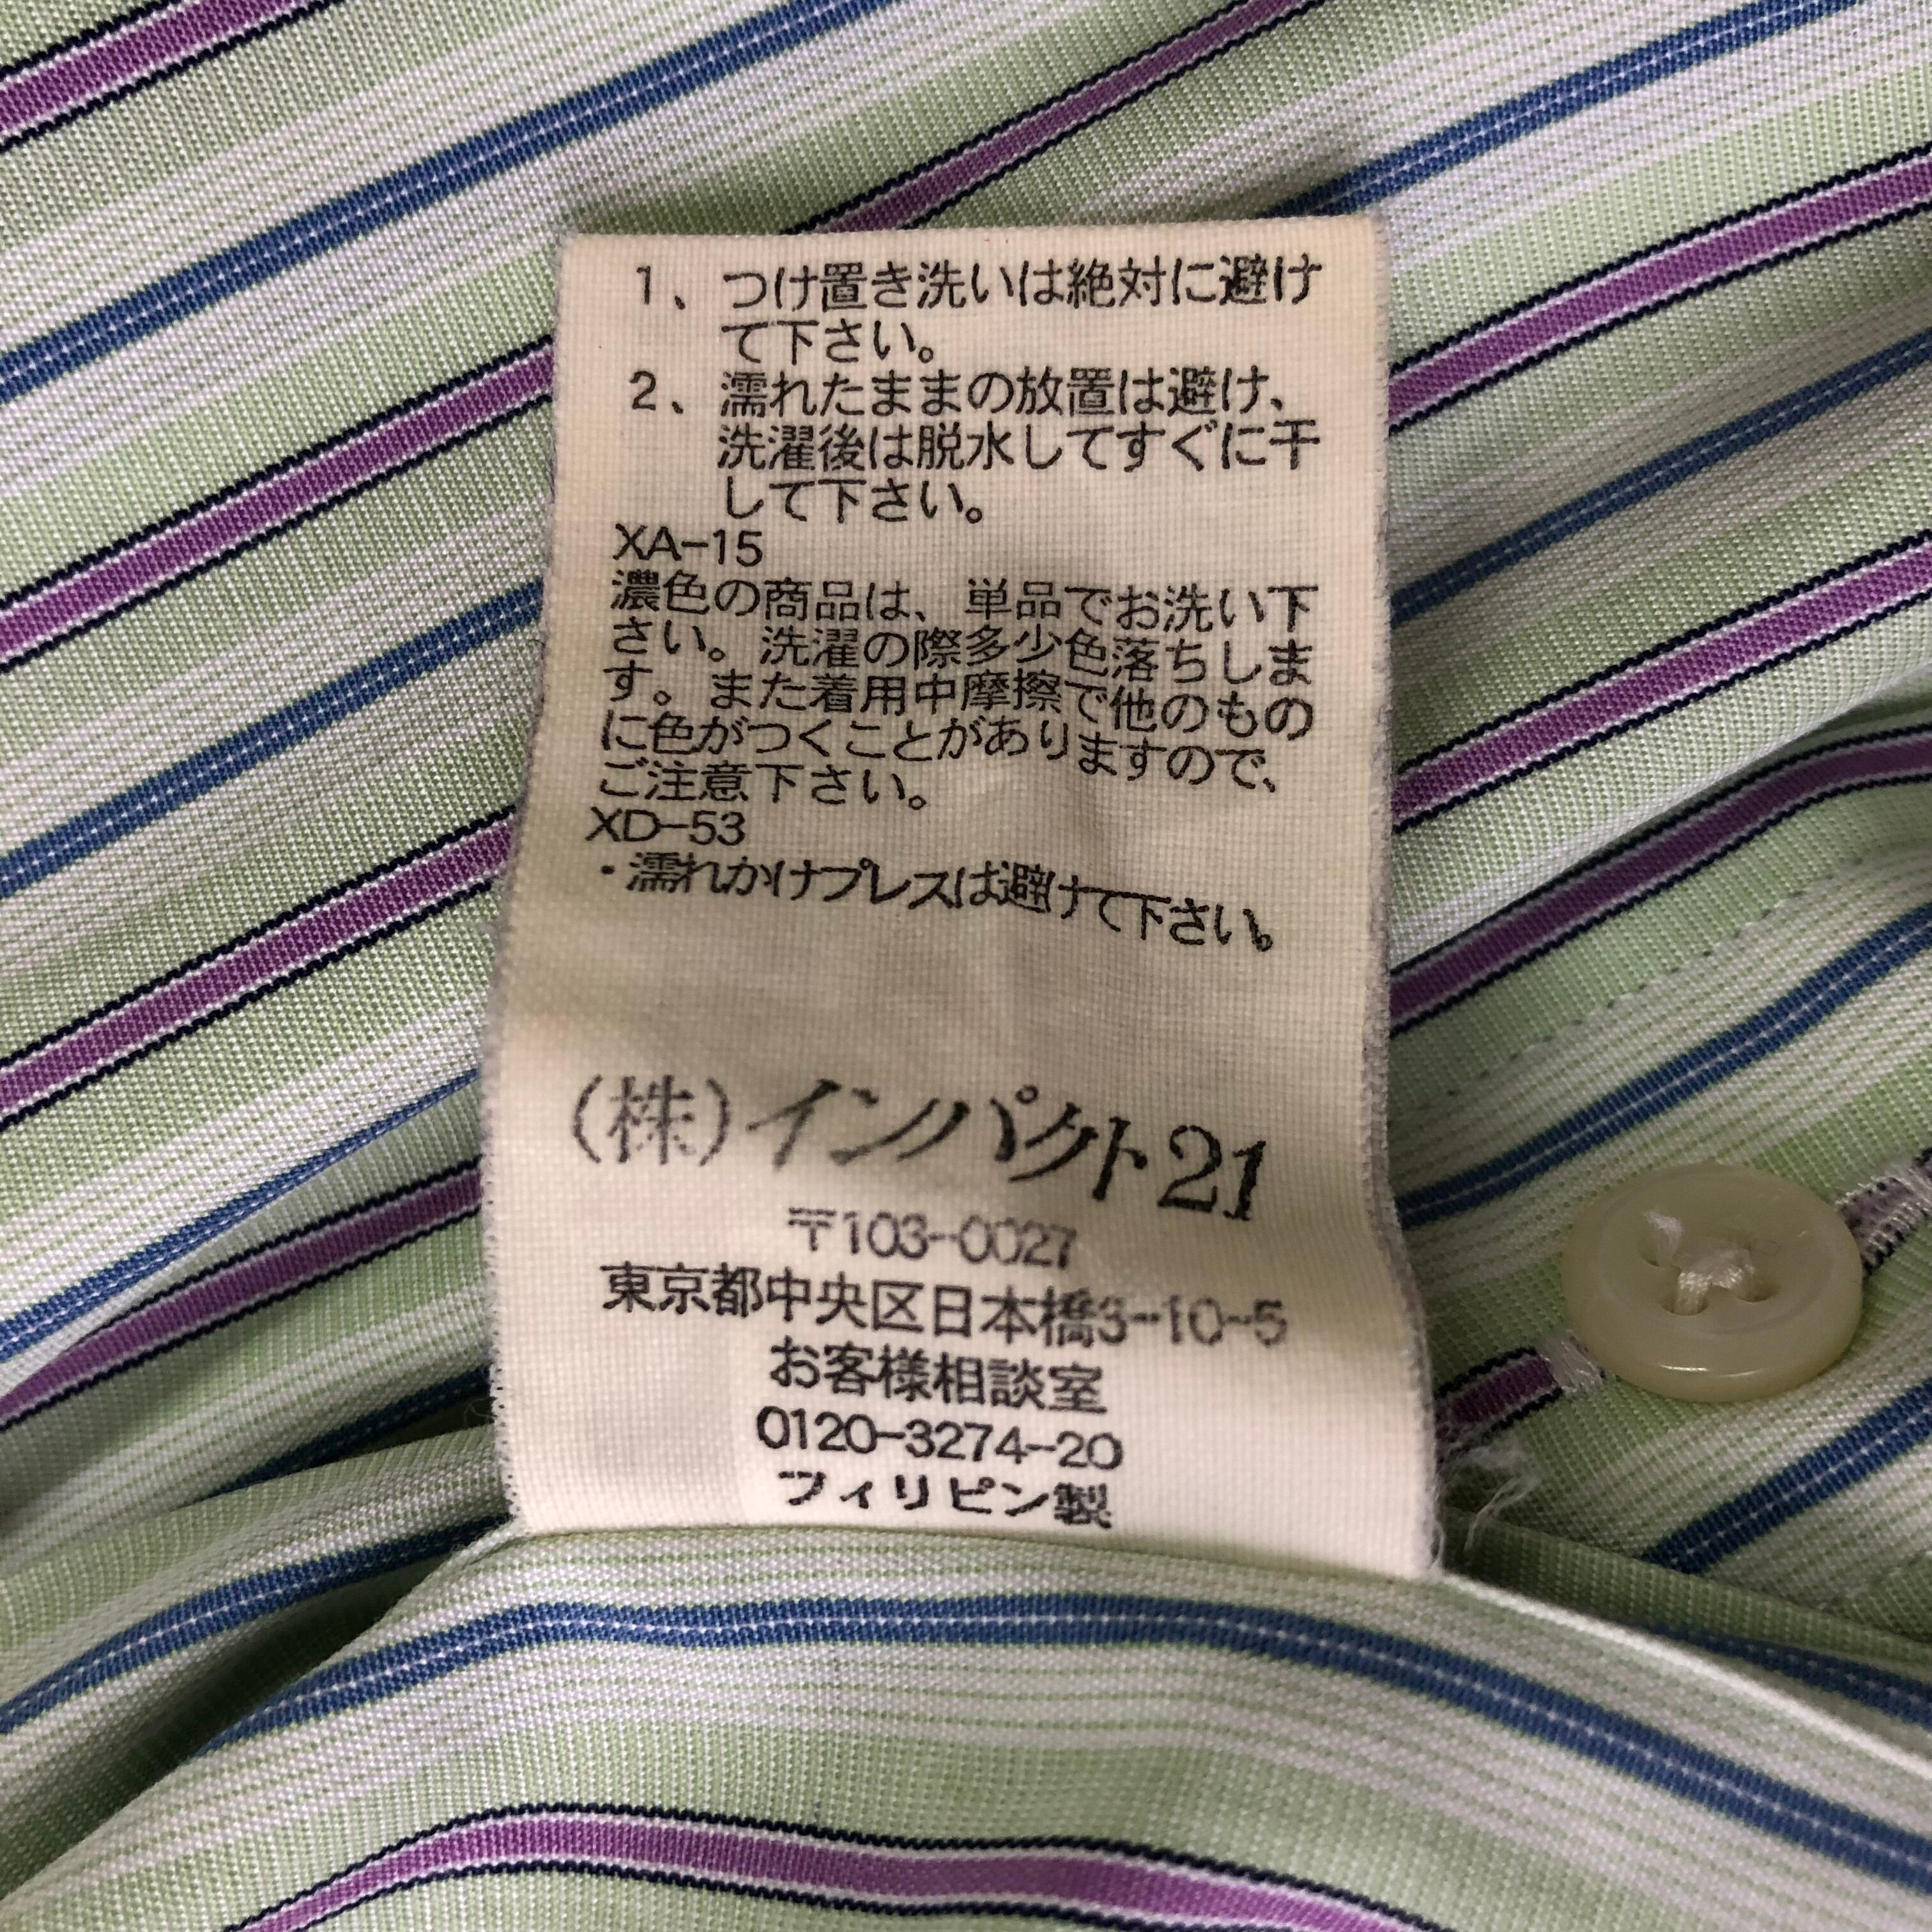 1、つけ置き洗いは絶対に避け
て下さい。
2、濡れたままの放置は避け、
洗濯後は脱水してすぐに干
して下さい。
XA-15
濃色の商品は、単品でお洗い下
さい。洗濯の際多少色落ちしま
す。また着用中摩擦で他のもの
に色がつくことがありますので、
ご注意下さい。
XD-53
・濡れかけプレスは避けて下さい。
(株)インパクト21
〒103-0027
東京都中央区日本橋3-10-5
お客様相談室
0120-3274-20
フィリピン製